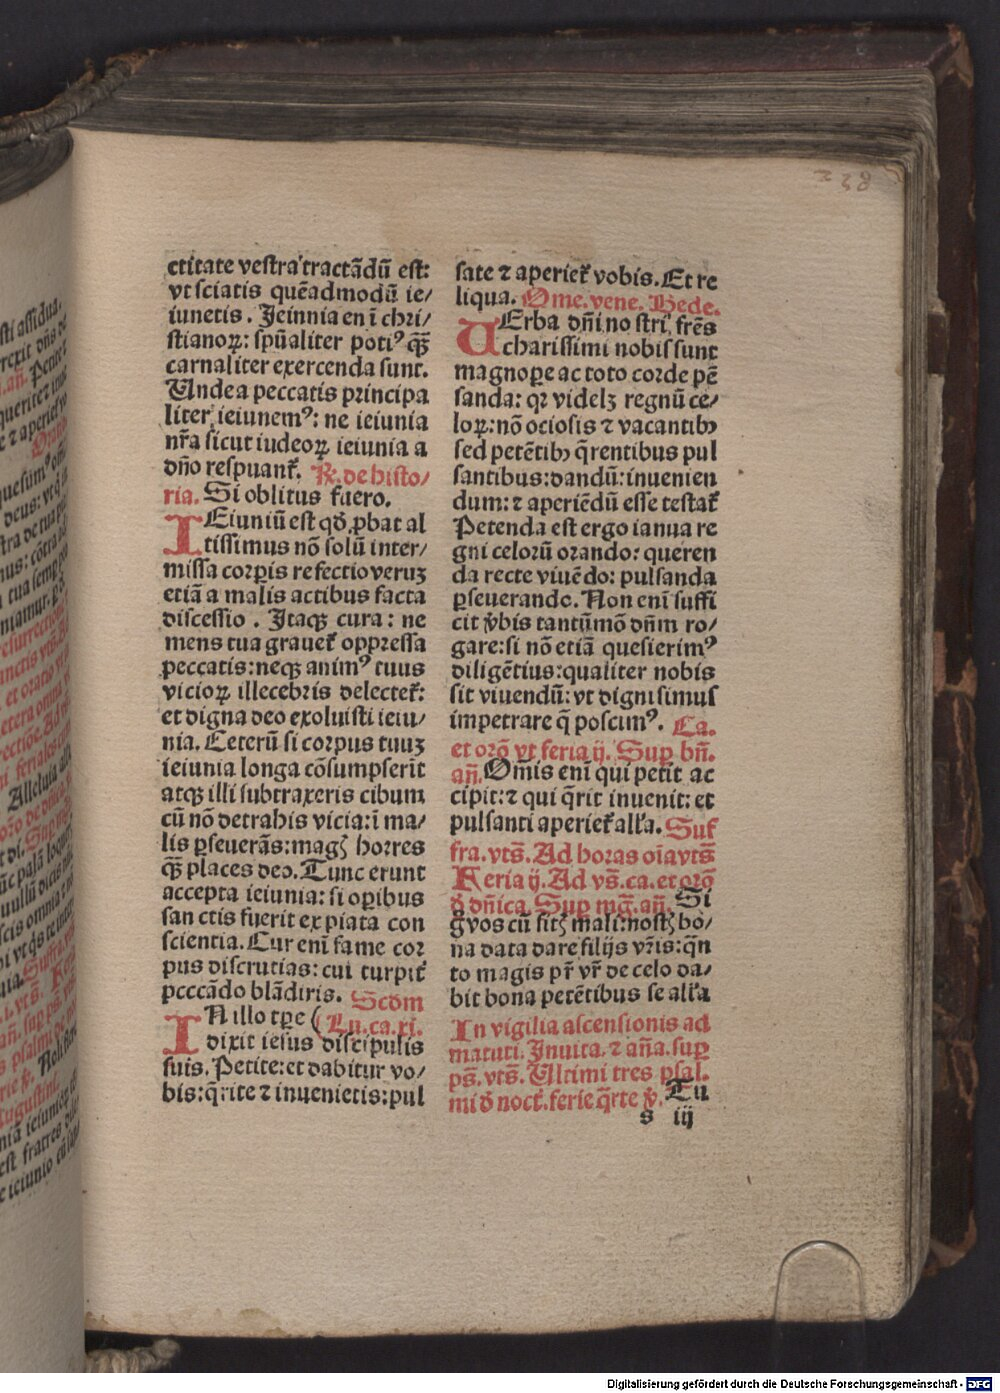 238
ctitate vestra tractãdũ est:
vt sciatis quẽadmodũ ie/
iunetis. Jeinnia en ĩ chri/
stianoꝝ: spũaliter poti⁹ q̃ꝫ
carnaliter exercenda sunt.
Unde a peccatis principa
liter ieiunem⁹: ne ieiunia
nr̃a sicut iudeoꝝ ieiunia a
dño respuant̃. ℞. de histo/
ria. Si oblitus fuero.
IEiuniũ est qđ ꝓbat al
tissimus nõ solũ inter/
missa corꝑis refectio veruꝫ
etiã a malis actibus facta
discessio. Itaqꝫ cura: ne
mens tua grauet̃ oppressa
peccatis: neqꝫ anim⁹ tuus
vicioꝝ illecebris delectet̃:
et digna deo exoluisti ieiu/
nia. Ceterũ si corpus tuuꝫ
ieiunia longa cõsumpserit
atqꝫ illi subtraxeris cibum
cũ nõ detrahis vicia: ĩ ma/
lis ꝑseuerãs: magꝭ horres
q̃ꝫ places deo. Tunc erunt
accepta ieiunia: si oꝑibus
san ctis fuerit expiata con
scientia. Cur enĩ fame cor
pus discrutias: cui turpit̃
pcccãdo blãdiris. Scđm
IN illo tꝑe ( Lu. ca. xi.
dixit iesus discipulis
suis. Petite: et dabitur vo/
bis: q̃rite ⁊ inuenietis: pul
sate ⁊ aperiet̃ vobis. Et re
liqua. Ome. vene. Bede.
UErba dñi no stri fr̃ẽs
charissimi nobis sunt
magnoꝑe ac toto corde pẽ
sanda: qꝛ videlꝫ regnũ ce/
loꝝ: nõ ociosis ⁊ vacantibꝫ
sed petẽtibꝫ q̃rentibus pul
santibus: dandũ: inuenien
dum: ⁊ aperiẽdũ esse testat̃
Petenda est ergo ianua re
gni celorũ orando: queren
da recte viuẽdo: pulsanda
ꝑseuerando. Non enĩ suffi
cit v̾bis tantũmõ dñm ro/
gare: si nõ etiã quesierim⁹
diligẽtius: qualiter nobis
sit viuendũ: vt digni simus
impetrare q̃ poscim⁹. Ca.
et orõ vt feria ij. Suꝑ bñ.
añ. Omis enĩ qui petit ac
cipit: ⁊ qui q̃rit inuenit: et
pulsanti aperiet̃ all'a. Suf
fra. vts̃. Ad horas oĩa vts̃
Feria ij. Ad vs̃. ca. et orõ
đ dñica. Suꝑ mg̃. añ. Si
g̊ vos cũ sitꝭ mali: nostꝭ bo/
na data dare filijs vr̃is: q̃n
to magis pr̃ vr̃ de celo da/
bit bona petẽtibus se all'a
In vigilia ascensionis ad
matuti. Inuita. ⁊ aña. suꝑ
ps̃. vts̃. Ultimi tres psal.
mi đ noct̃. ferie q̃rte v̾. Tu
s iij
Digitalisierung gefördert durch die Deutsche Forschungsgemeinschaft - DFG